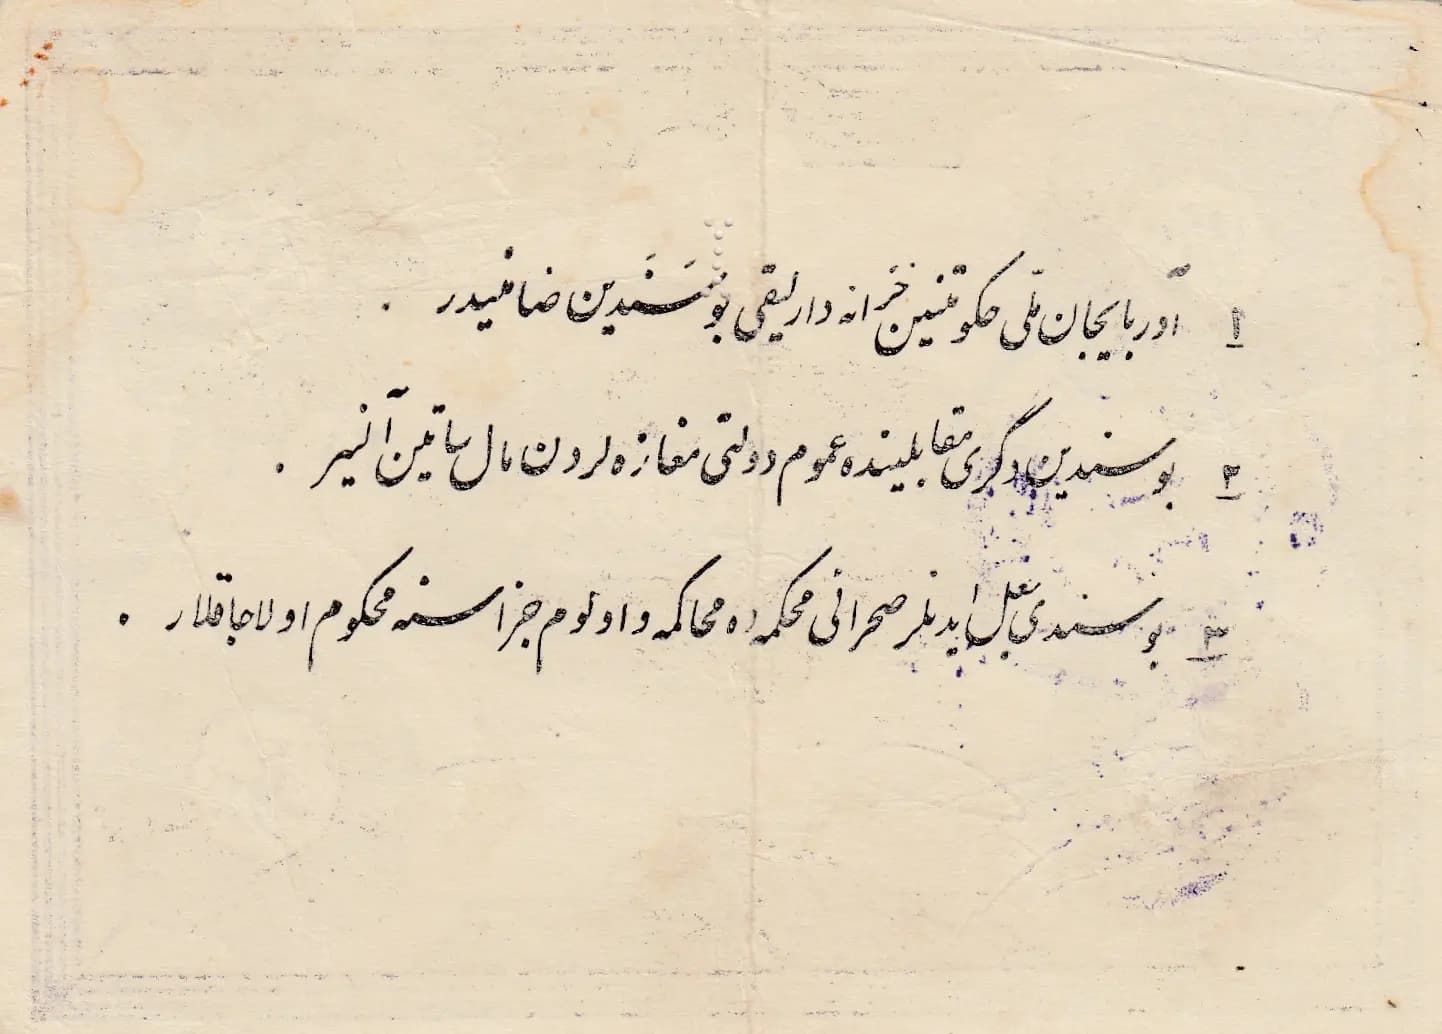 ۱ آذربایجان ملّی حکومتنین خزانه دارلیقی بو سَنَدین ضامنیدر .
۲ بو سندین دگری مقابلینده عموم دولتی مغازه لردن مال ساتین آلنیر .
۳ بو سندی جعل ایدنلر صحرائی محکمه ده محاکمه و اولوم جزاسنه محکوم اولاجاقلار .